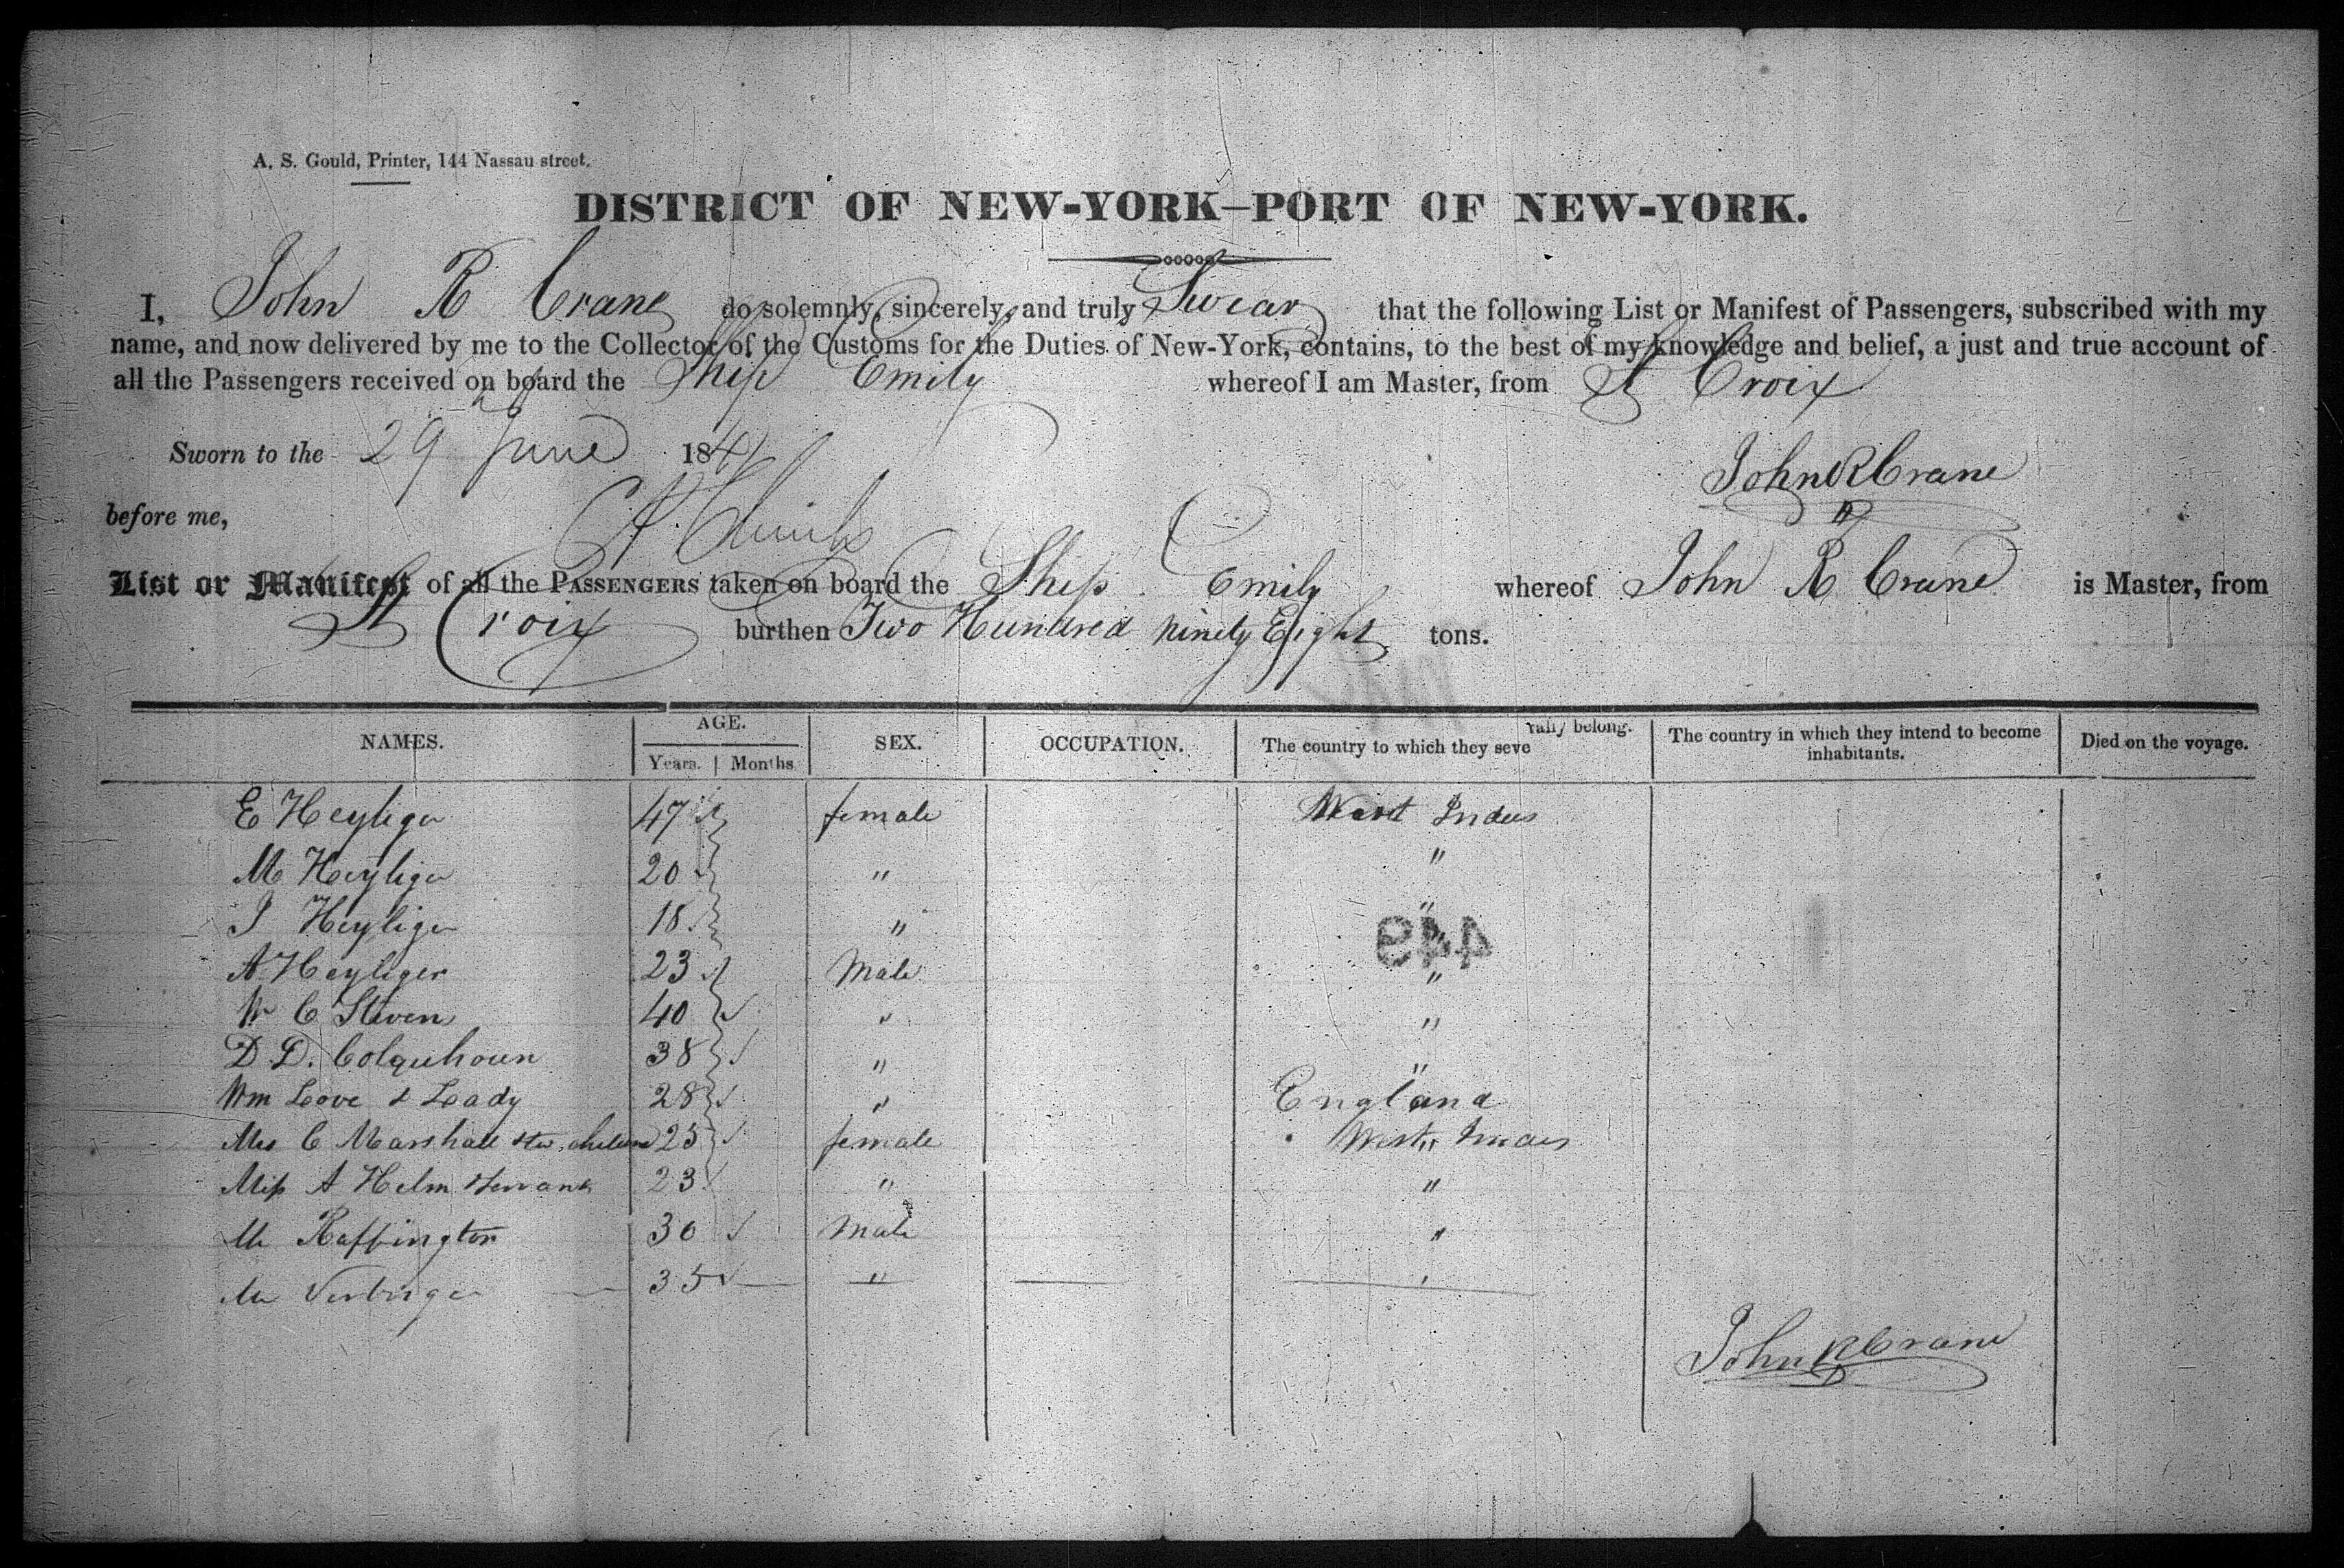 A. S. Gould, Printer, 144 Nassau street.
DISTRICT OF NEW-YORK—PORT OF NEW-YORK.
I, John R Crane do solemnly, sincerely, and truly Swear that the following List or Manifest of Passengers, subscribed with my
name, and now delivered by me to the Collector of the Customs for the Duties of New-York, contains, to the best of my knowledge and belief, a just and true account of
all the Passengers received on board the Ship Emily whereof I am Master, from St Croix
Sworn to the 29 June 184
John R Crane
before me,
List or Manifest of all the PASSENGERS taken on board the Ship Emily whereof John R Crane is Master, from
St Croix burthen Two Hundred ninety Eight tons.
NAMES. AGE. Years. Months. SEX. OCCUPATION. The country to which they severally belong. The country in which they intend to become inhabitants. Died on the voyage.
E Heyliger 47 female West Indies
M Heyliger 20 " "
J Heyliger 18 " "
449
A Heyliger 23 Male "
W C Steven 40 " "
D. D. Colquhoun 38 " "
Wm Love & Lady 28 " England
Mrs C Marshall 25 female West Indies
Miss A Helm & servant 23 " "
Mr 30 Male "
Mr 35 " "
John R Crane